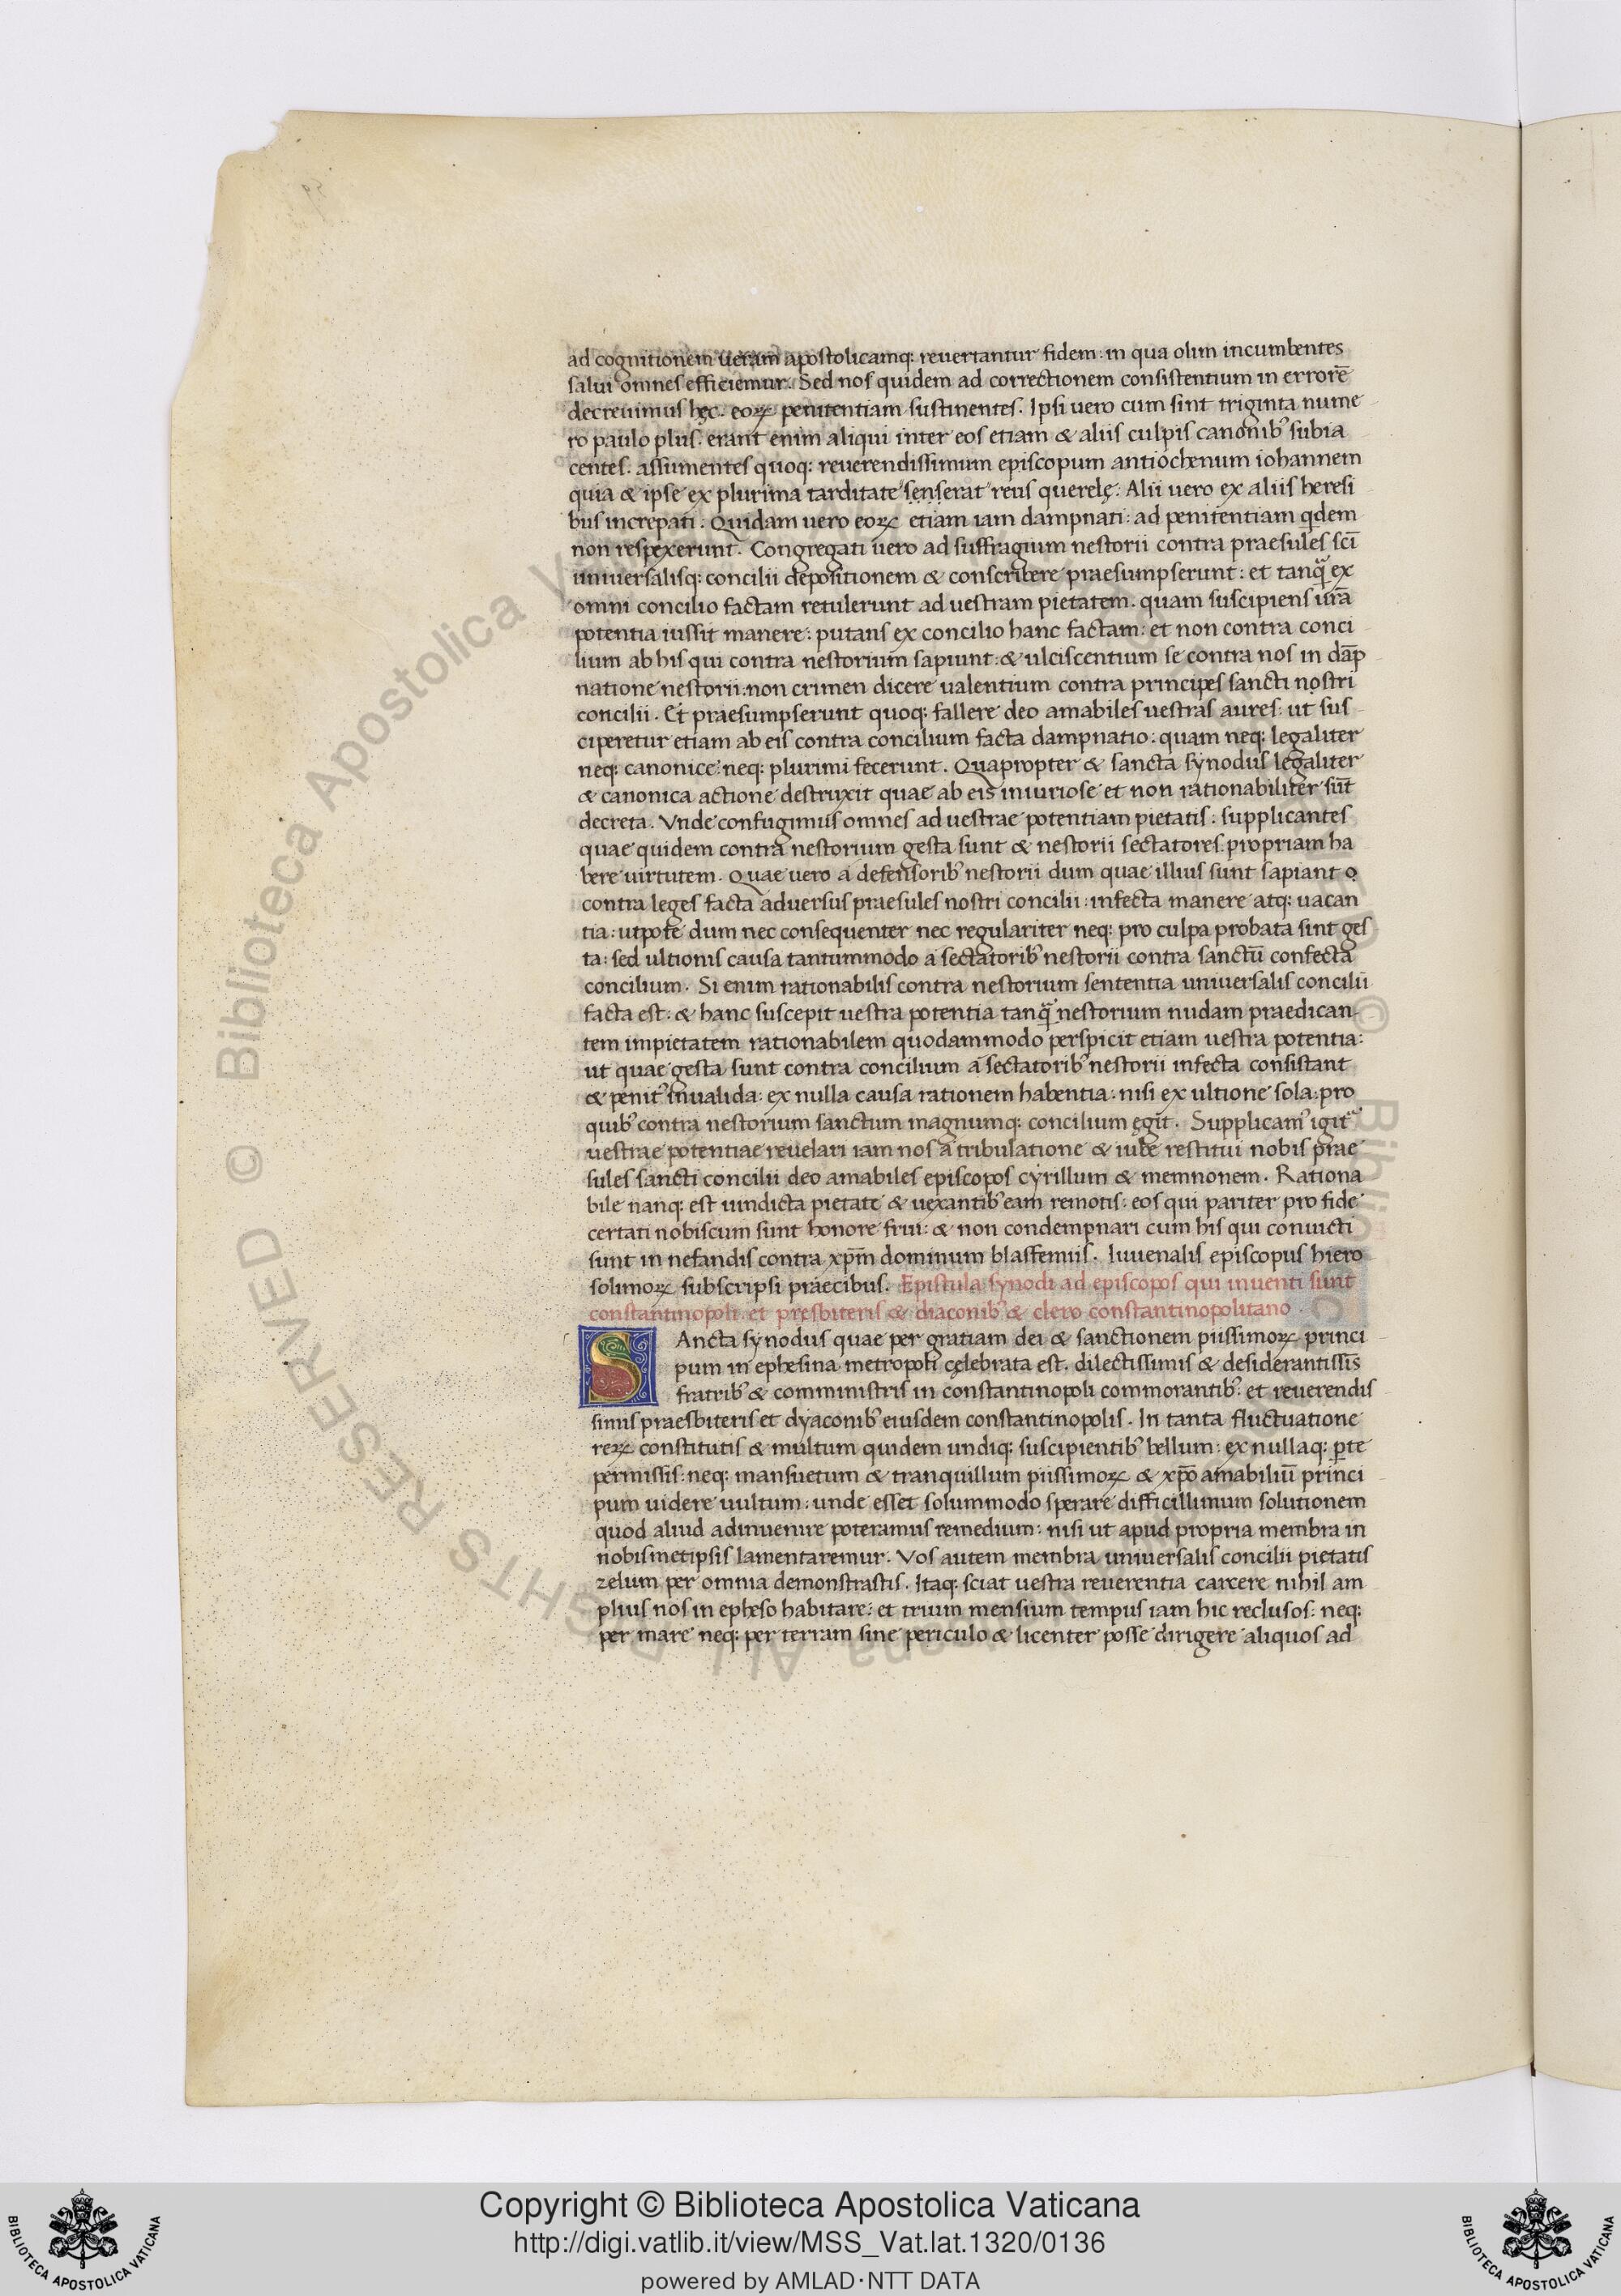 ad cognitionem ueram apostolicamq: reuertantur fidem: in qua olim incumbentes
salui omnes efficiemur. Sed nos quidem ad correctionem consistentium in errorē
decreuimus hęc. eoꝝ penitentiam sustinentes. Ipsi uero cum sint triginta nume
ro paulo plus. erant enim aliqui inter eos etiam & aliis culpis canonib᾽ subia
centes: assumentes quoq: reuerendissimum episcopum antiochenum iohannem
quia & ipse ex plurima tarditate senserat reus querelę. Alii uero ex aliis heresi
bus increpati. Quidam uero eoꝝ etiam iam dampnati: ad penitentiam qdem
non respexerunt. Congregati uero ad suffragium nestorii contra praesules sc̄i
uniuersalisq: concilii depositionem & conscribere praesumpserunt: et tanq̄ ex
omni concilio factam retulerunt ad uestram pietatem. quam suscipiens ur̄a
potentia iussit manere: putans ex concilio hanc factam: et non contra conci
lium ab his qui contra nestorium sapiunt: & ulciscentium se contra nos in dāp
natione nestorii: non crimen dicere ualentium contra principes sancti nostri
concilii. Et praesumpserunt quoq: fallere deo amabiles uestras aures: ut sus
ciperetur etiam ab eis contra concilium facta dampnatio: quam neq: legaliter
neq: canonice: neq: plurimi fecerunt. Quapropter & sancta synodus legaliter
& canonica actione destruxit quae ab eis iniuriose et non rationabiliter sūt
decreta. Vnde confugimus omnes ad uestrae potentiam pietatis: supplicantes
quae quidem contra nestorium gesta sunt & nestorii sectatores: propriam ha
bere uirtutem. Quae uero a defensorib᾽ nestorii dum quae illius sunt sapiant
contra leges facta aduersus praesules nostri concilii: infecta manere atq: uacan
tia: utpote dum nec consequenter nec regulariter neq: pro culpa probata sint ges
ta: sed ultionis causa tantummodo a sectatorib᾽ nestorii contra sanctū confecta
concilium. Si enim rationabilis contra nestorium sententia uniuersalis concilii
facta est: & hanc suscepit uestra potentia tanq̄ nestorium nudam praedican-
tem impietatem rationabilem quodammodo perspicit etiam uestra potentia:
ut quae gesta sunt contra concilium a sectatorib᾽ nestorii infecta consistant
& penit᾽ inualida: ex nulla causa rationem habentia: nisi ex ultione sola: pro
quib᾽ contra nestorium sanctum magnumq: concilium ęgit. Supplicam᾽ igit᾽
uestrae potentiae reuelari iam nos a tribulatione & iube restitui nobis prae
sules sancti concilii deo amabiles episcopos cyrillum & memnonem. Rationa
bile nanq: est uindicta pietate & uexantib᾽ eam remotis: eos qui pariter pro fide
certati nobiscum sunt honore frui: & non condempnari cum his qui conuicti
sunt in nefandis contra xp̄m dominum blasfemiis. Iuuenalis episcopus hiero
solimoꝝ subscripsi praecibus. Epistula synodi ad episcopos qui inuenti sunt
constantinopoli et presbiteris & diaconib᾽ & clero constantinopolitano.
SAncta synodus quae per gratiam dei & sanctionem piissimoꝝ princi
pum in ephesina metropoli cęlebrata est. dilectissimis & desiderantissis̄
fratrib᾽ & comministris in constantinopoli commorantib᾽: et reuerendis
simis praesbiteris et dyaconib᾽ eiusdem constantinopolis. In tanta fluctuatione
reꝝ constitutis & multum quidem undiq: suscipientib᾽ bellum: ex nullaq: ꝑte
permissis: neq: mansuetum & tranquillum piissimoꝝ & xp̄o amabiliū princi
pum uidere uultum: unde esset solummodo sperare difficillimum solutionem
quod aliud adinuenire poteramus remedium: nisi ut apud propria membra in
nobismetipsis lamentaremur. Vos autem membra uniuersalis concilii pietatis
zelum per omnia demonstrastis. Itaq: sciat uestra reuerentia carcere nihil am
plius nos in epheso habitare: et trium mensium tempus iam hic reclusos: neq:
per mare neq: per terram sine periculo & licenter posse dirigere aliquos ad
© Biblioteca Apostolica Vaticana ALL RIGHTS RESERVED
Copyright © Biblioteca Apostolica Vaticana
http://digi.vatlib.it/view/MSS_Vat.lat.1320/0136
powered by AMLAD·NTT DATA
BIBLIOTECA APOSTOLICA VATICANA
BIBLIOTECA APOSTOLICA VATICANA